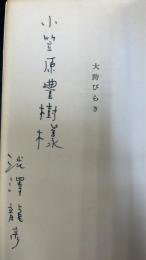 大胯びらき
小笠原豊樹様
澁澤龍彦